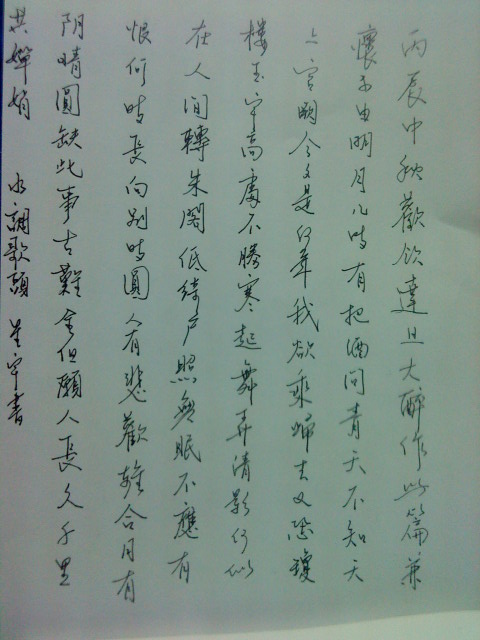 丙辰中秋歡飲達旦大醉作此篇兼
懷子由明月几時有把酒問青天不知天
上宮闕今夕是何年我欲乘歸去又恐瓊
樓玉宇高處不勝寒起舞弄清影何似
在人间轉朱閣低綺户照無眠不應有
恨何時長向别時圓人有悲歡離合月有
阴晴圓缺此事古難全但願人長久千里
共嬋娟 水調歌頭 星宇書